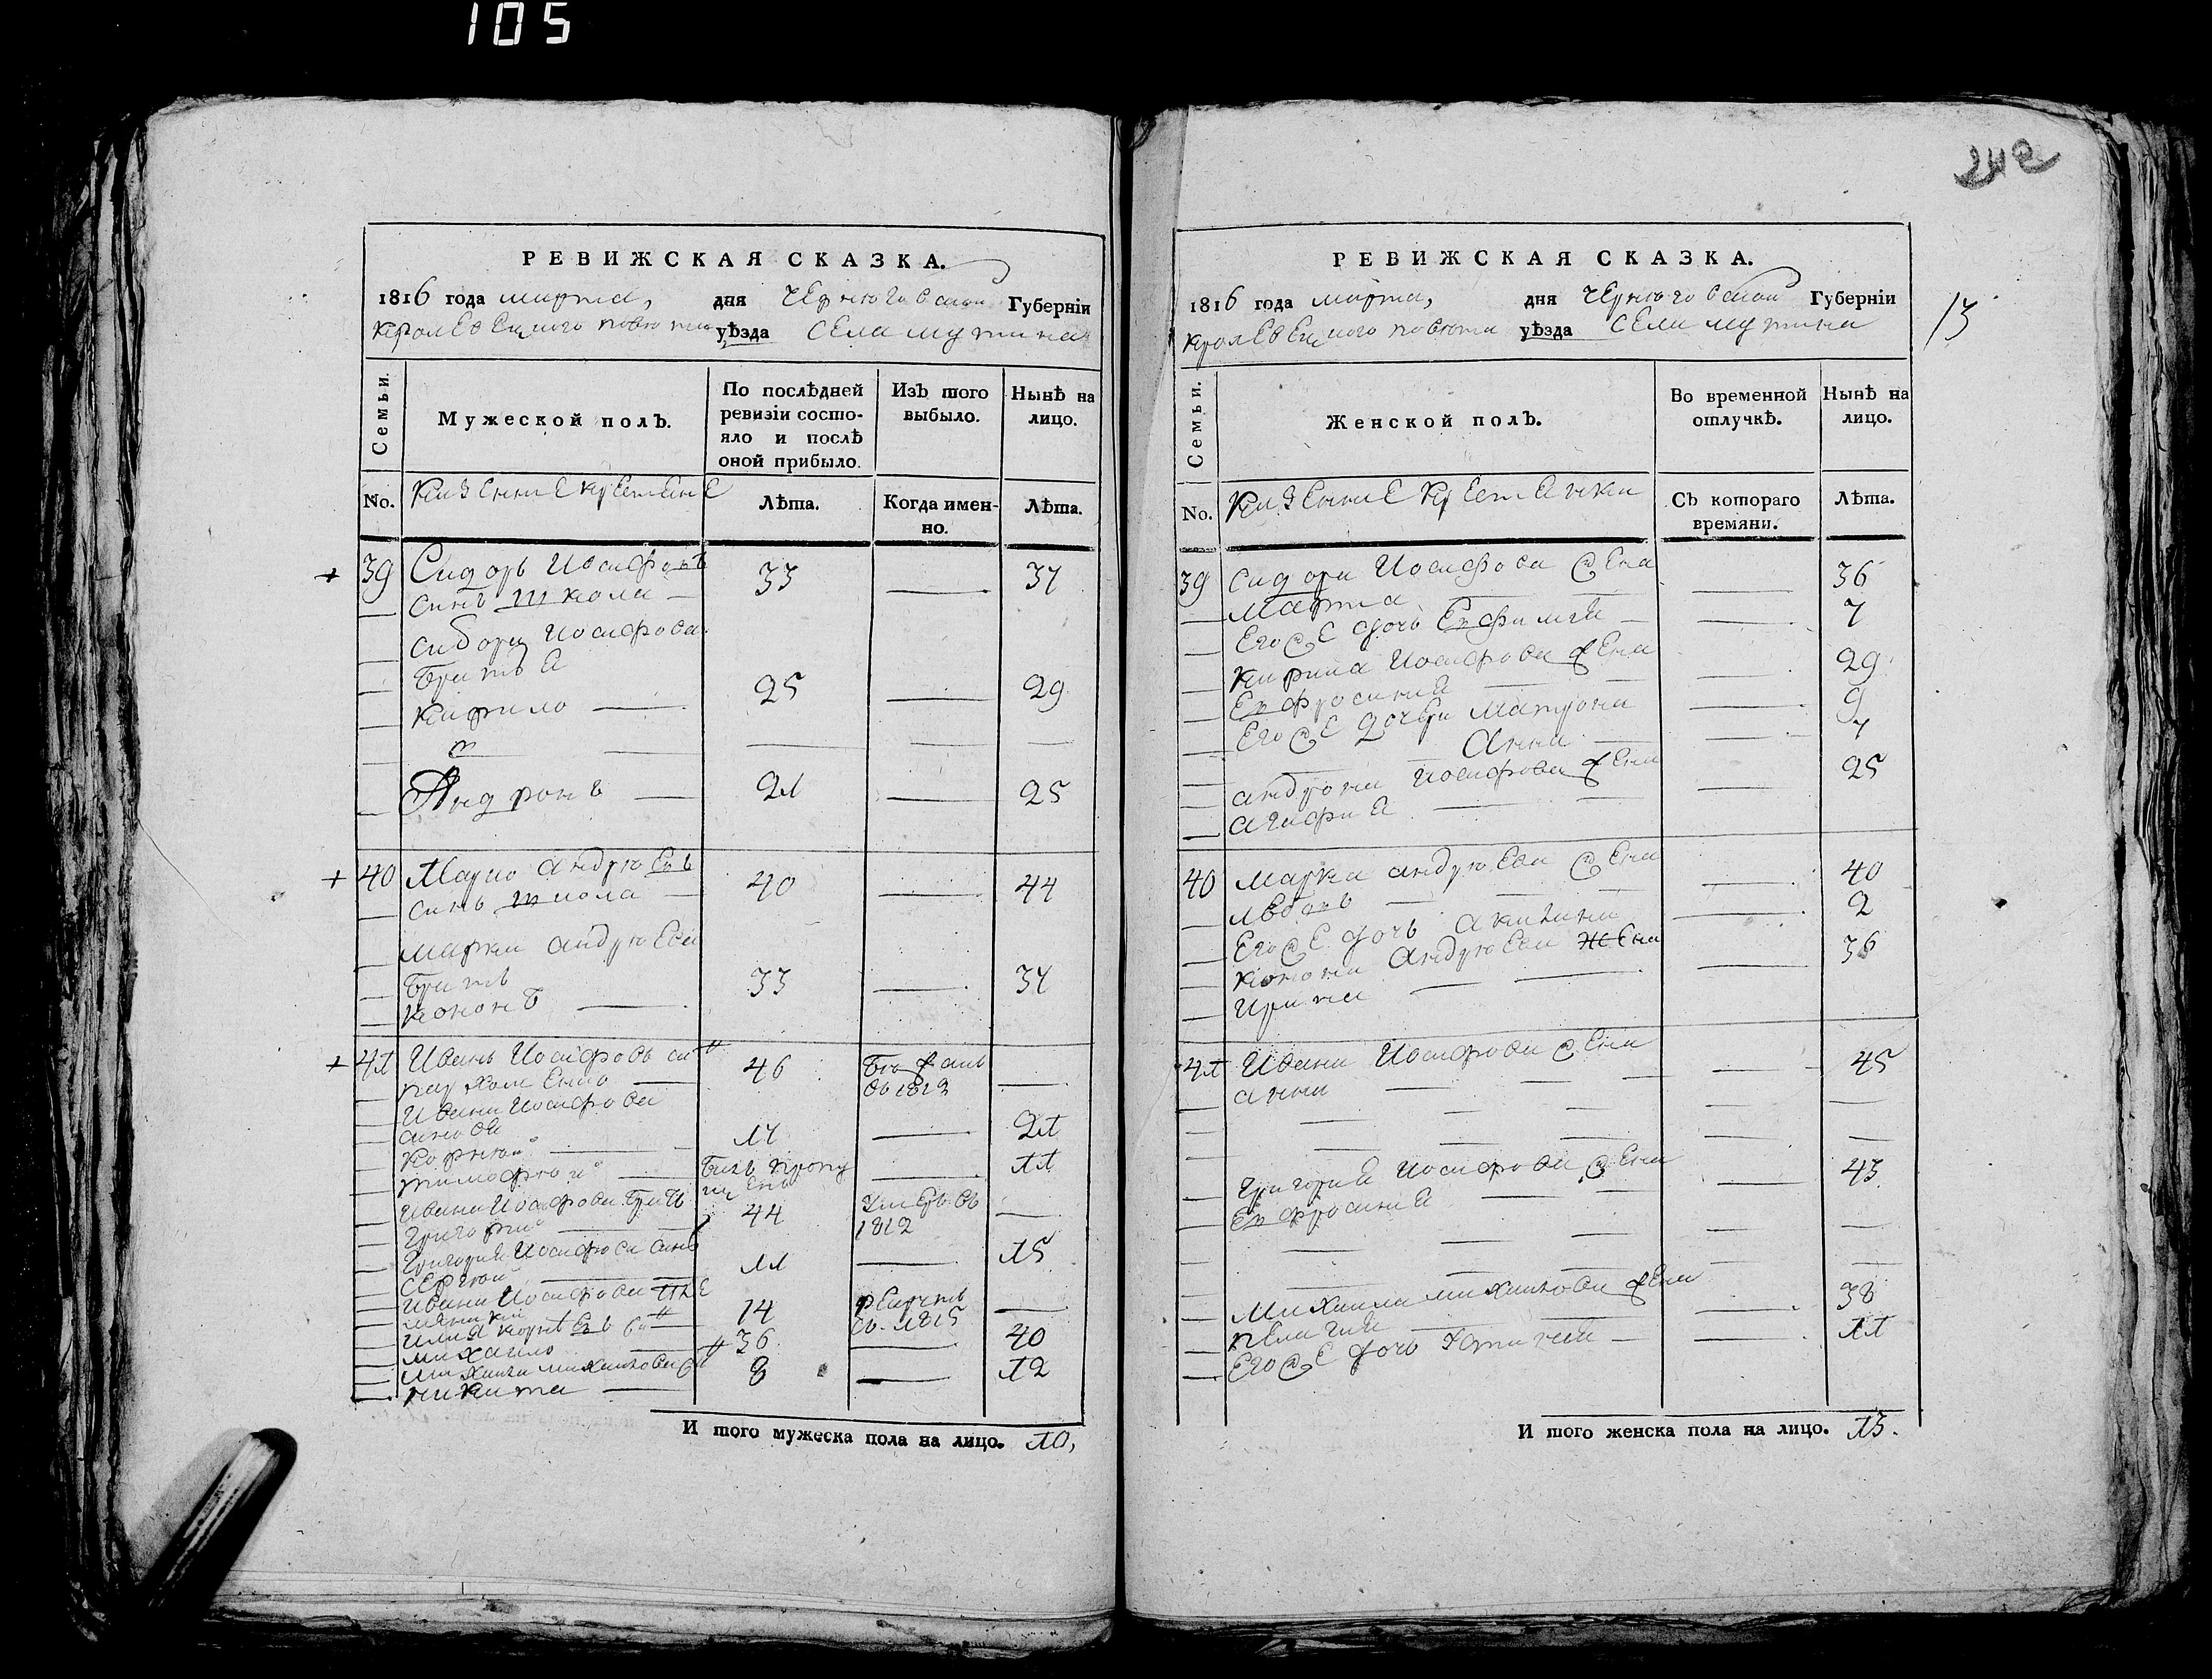 105
242
13
РЕВИЖСКАЯ СКАЗКА.
1816 года марта, дня Чернѣговской Губернїи
Кролевецкого повѣта уѣзда села Мутина
Семьи.
Мужеской полъ.
По послѣдней ревизїи состояло и послѣ оной прибыло.
Изъ того выбыло.
Нынѣ на лицо.
No.
Казенние крестяне
Лѣта.
Когда именно.
Лѣта.
39 Сидоръ Иосифовъ
синъ Школа — 33 — 37
Сидора Иосифова
братья
Кирило — 25 — 29
Андронъ — 21 — 25
40 Марко Андрѣевъ
синъ Школа — 40 — 44
Марка Андрѣева
братъ
Кононъ — 33 — 37
41 Иванъ Иосифовъ синъ
Пархоменко — 46 Бѣжалъ въ 1813 —
Ивана Иосифова
синови
Корнѣй — 17 — 21
Тимофѣй — билъ пропущенъ — 11
Ивана Иосифова братъ
Григорий — 44 Умеръ въ 1812 —
Григория Иосифова синъ
Сергѣй — 11 — 15
Ивана Иосифова
14 рекрутъ въ 1815 —
Михайло — 36 — 40
Михайла Михайлова
Никита — 8 — 12
И того мужеска пола на лицо. 10,
РЕВИЖСКАЯ СКАЗКА.
1816 года марта, дня Чернѣговской Губернїи
Кролевецкого повѣта уѣзда села Мутина
Семьи.
Женской полъ.
Во временной отлучкѣ.
Нынѣ на лицо.
No.
Казенние крестянки
Съ котораго времяни.
Лѣта.
39 Сидора Иосифова жена
Марта — 36
Его же дочь Евфимия — 7
Кирила Иосифова жена
Евфросиния — 29
Его же дочери Матрона — 9
Анна — 7
Андрона Иосифова жена
Агафия — 25
40 Марка Андрѣева жена
40
Его же дочь Акилина — 2
Конона Андрѣева жена
Ирина — 36
41 Ивана Иосифова жена
Анна — 45
Григория Иосифова жена
Евфросиния — 43
Михаила Михайлова жена
Пелагия — 38
Его же дочь Устиния — 11
И того женска пола на лицо. 13.